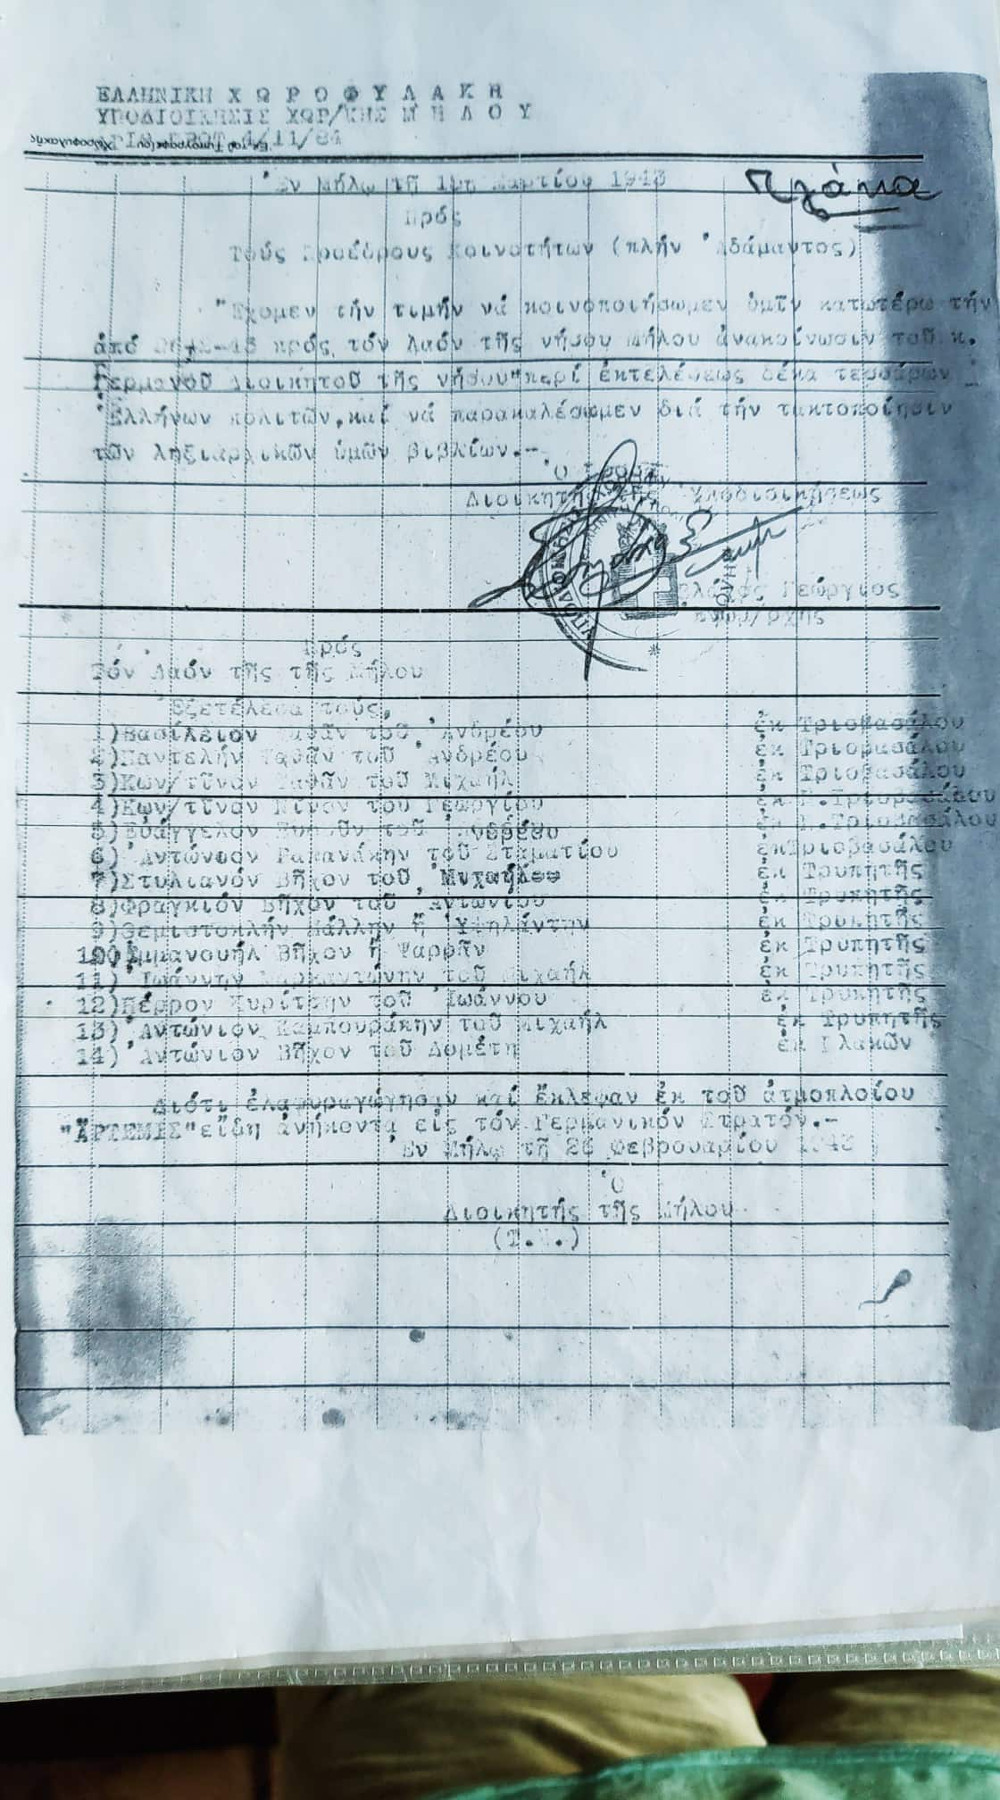 ΕΛΛΗΝΙΚΗ Χ Ω Ρ Ο Φ Υ Λ Α Κ Η
ΥΠΟΔΙΟΙΚΗΣΙΣ ΧΩΡ/ΚΗΣ Μ Η Λ Ο Υ
ΠΡΩΤ 4/11/84
Ἐν Μήλῳ τῇ 1ῃ Μαρτίου 1943
Πλάκα
Πρός
Τούς Προέδρους Κοινοτήτων (πλήν Ἀδάμαντος)
Ἔχομεν τήν τιμήν νά κοινοποιήσωμεν ὑμῖν κατωτέρω τήν
ἀπό πρός τόν Λαόν τῆς νήσου Μήλου ἀνακοίνωσιν τοῦ κ.
Γερμανοῦ Διοικητοῦ τῆς νήσου "περί ἐκτελέσεως δέκα τεσσάρων
Ἑλλήνων πολιτῶν, καί νά παρακαλέσωμεν διά τήν τακτοποίησιν
τῶν ληξιαρχικῶν ὑμῶν βιβλίων.-
Ὁ
Διοικητής τῆς Ὑποδιοικήσεως
Γεώργιος
Πρός
Τόν Λαόν τῆς τῆς Μήλου
Ἐξετέλεσα τούς,
1)Βασίλειον τοῦ Ἀνδρέου ἐκ Τριοβασάλου
2)Παντελήν τοῦ Ἀνδρέου ἐκ Τριοβασάλου
3)Κων/τῖνον τοῦ Μιχαήλ ἐκ Τριοβασάλου
4)Κων/τῖνον τοῦ Γεωργίου ἐκ Π.Τριοβασάλου
5)Εὐάγγελον τοῦ Ἀνδρέου ἐκ Π.Τριοβασάλου
6)Ἀντώνιον τοῦ Σταματίου ἐκ Τριοβασάλου
7)Στυλιανόν Βῆχον τοῦ Μιχαήλ ἐκ Τρυπητῆς
8)Φραγκιόν Βῆχον τοῦ Ἀντωνίου ἐκ Τρυπητῆς
9)Θεμιστοκλήν Μάλλην ἤ Ὑψηλάντην ἐκ Τρυπητῆς
10)Ἐμμανουήλ Βῆχον ἤ Ψαρρᾶν ἐκ Τρυπητῆς
11)Ἰωάννην τοῦ Μιχαήλ ἐκ Τρυπητῆς
12)Πέρρον Κυρίτσην τοῦ Ἰωάννου ἐκ Τρυπητῆς
13)Ἀντώνιον Καμπουράκην τοῦ Μιχαήλ ἐκ Τρυπητῆς
14)Ἀντώνιον Βῆχον τοῦ Δομέτη ἐκ Πλακῶν
Διότι ἐλαφυραγώγησαν καί ἔκλεψαν ἐκ τοῦ ἀτμοπλοίου
"ΑΡΤΕΜΙΣ" εἴδη ἀνήκοντα εἰς τόν Γερμανικόν Στρατόν.-
Ἐν Μήλῳ τῇ 26 Φεβρουαρίου 1943
Ὁ
Διοικητής τῆς Μήλου
(Τ.Υ.)